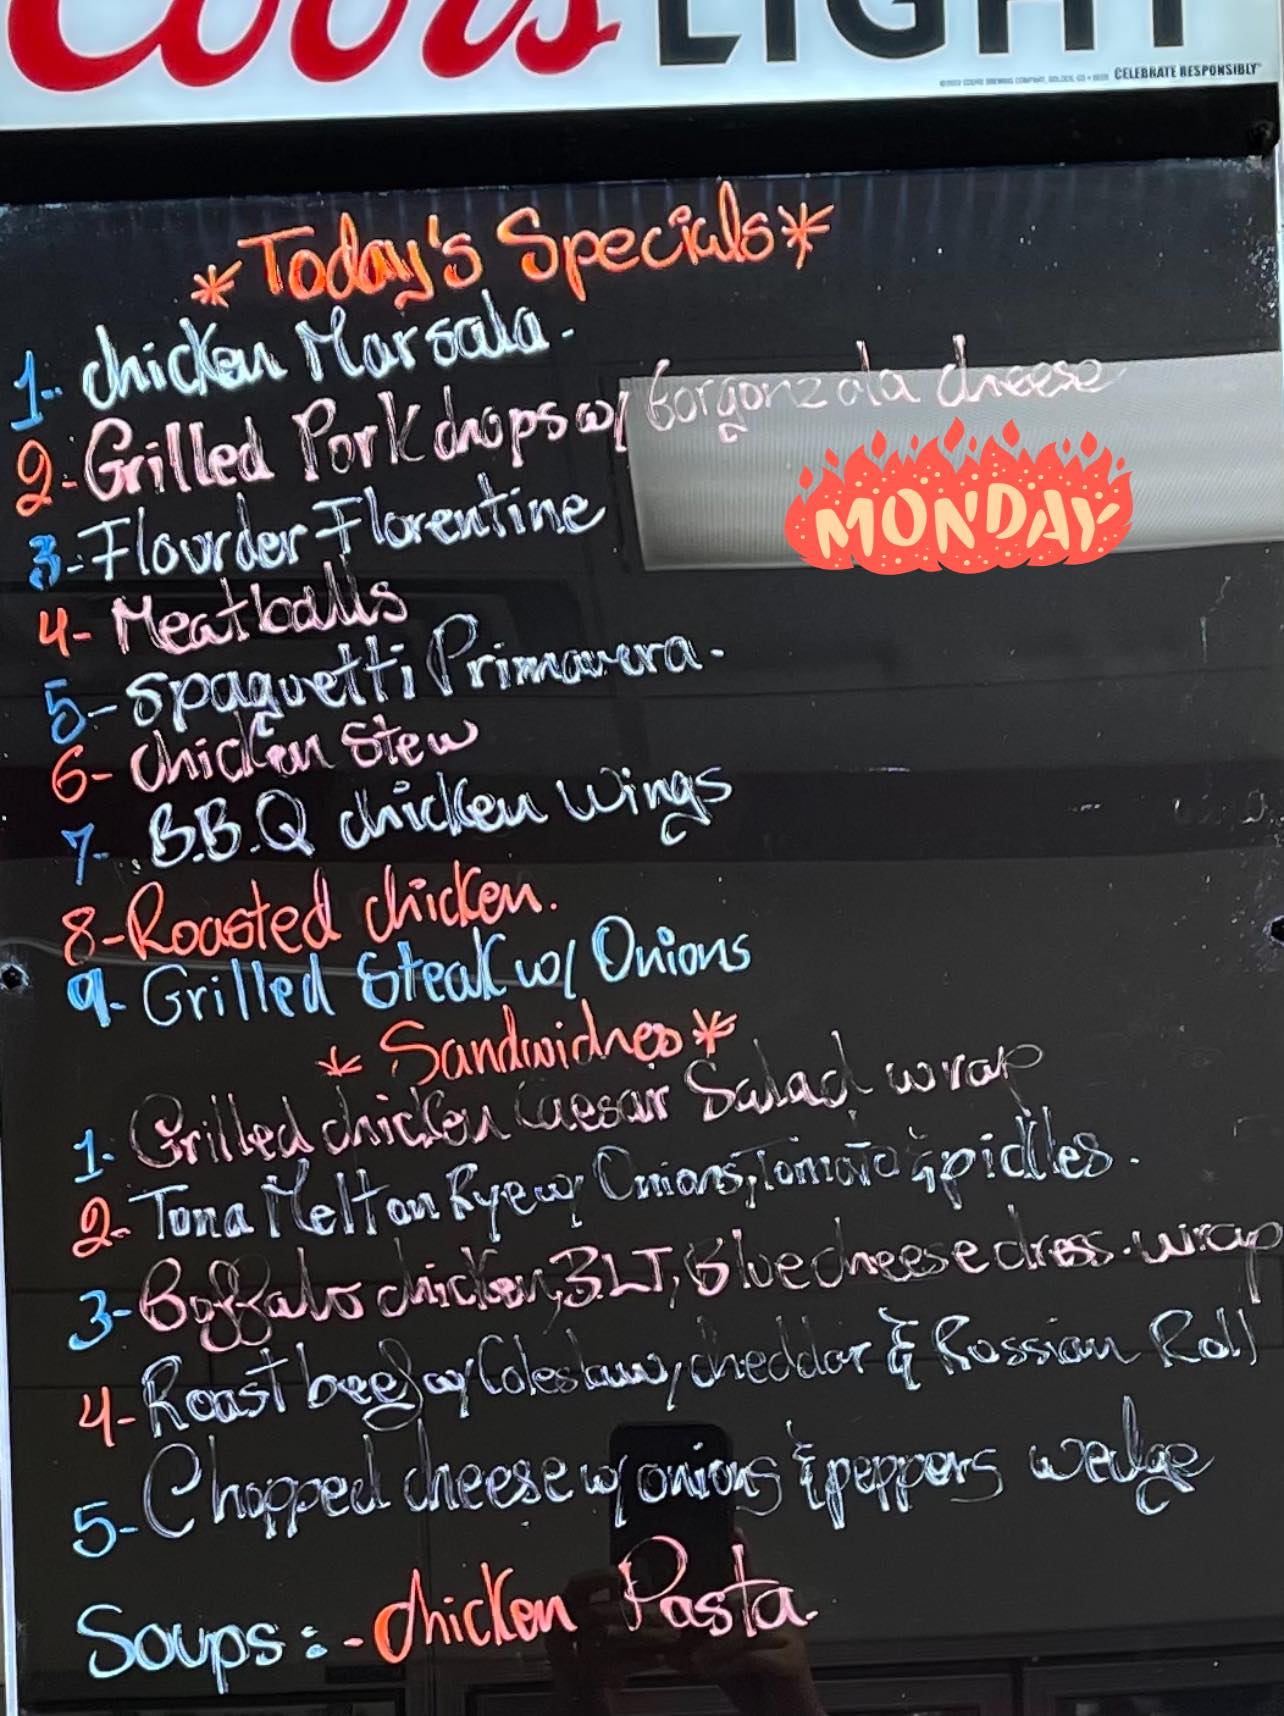 Coors LIGHT
CELEBRATE RESPONSIBLY
*Today's Specials*
1- chicken Marsala.
2- Grilled Pork chops w/ Gorgonzola cheese
MONDAY
3- Flourder Florentine
4- Meatballs
5- Spaguetti Primavera.
6- chicken Stew
7- B.B.Q chicken Wings
8- Roasted chicken.
9- Grilled Steak w/ Onions
* Sandwiches *
1- Grilled chicken Caesar Salad wrap
2- Tuna Melt on Rye w/ Onions, Tomato & pickles.
3- Buffalo chicken, BLT, Blue cheese dress. wrap
4- Roast beef w/ Coleslaw, cheddar & Russian Roll
5- Chopped cheese w/ onions & peppers wedge
Soups: - chicken Pasta.